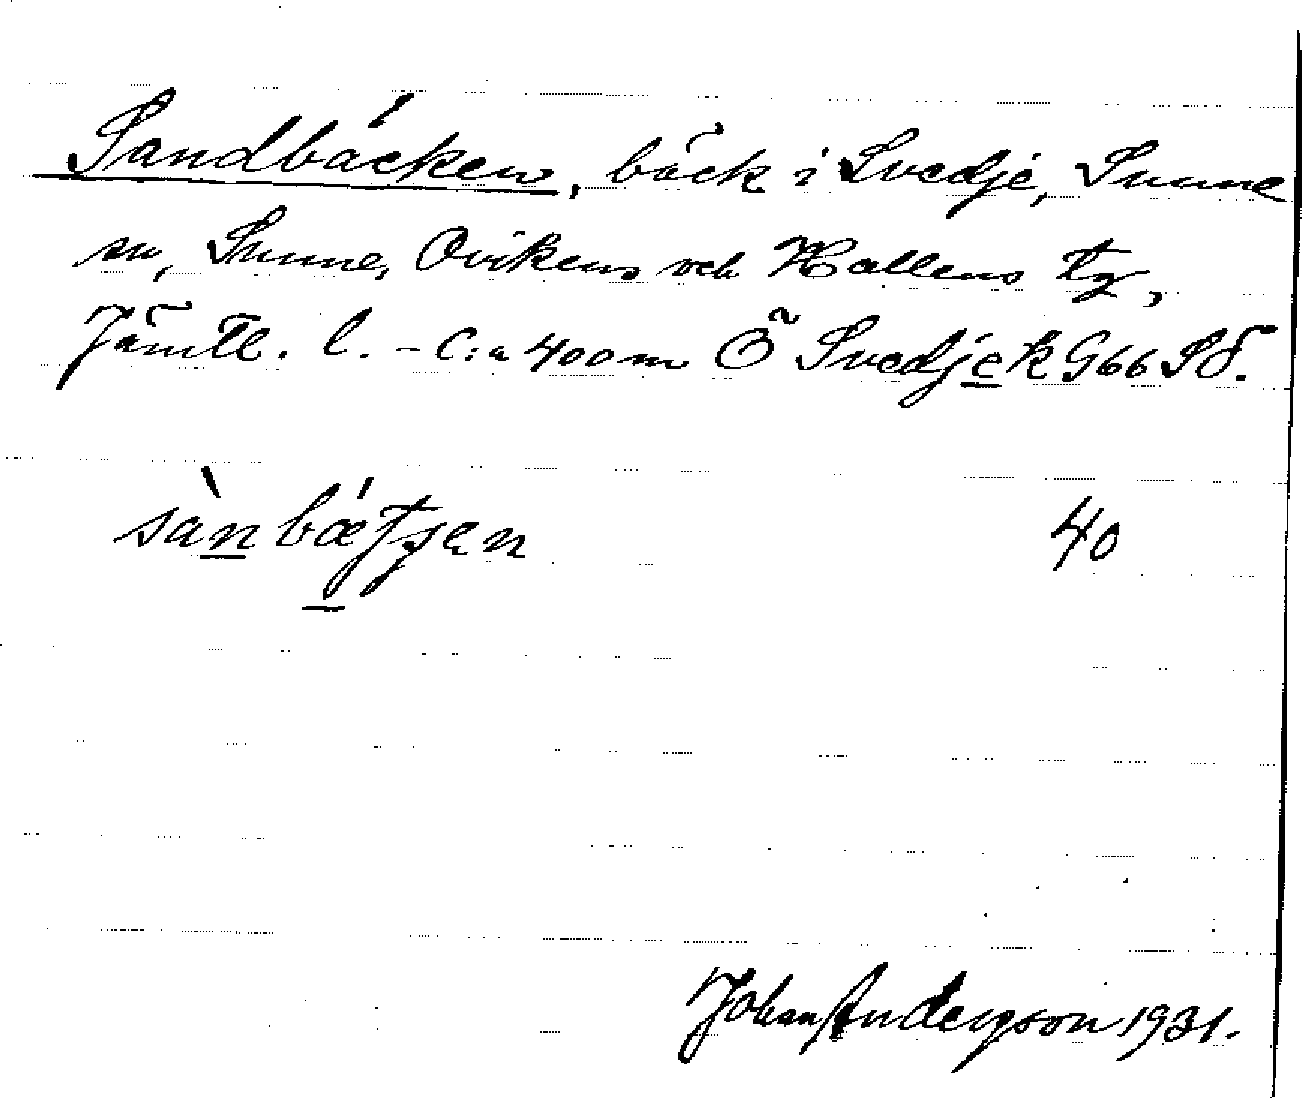 Sandbäcken, bäck i Svedje, Sunne
sn, Sunne, Ovikens och Hallens tg,
Jämtl. l. - C:a 400 m Ö Svedje k G66 SÖ.
sànbǽtjen 40
Johan Andersson 1931.